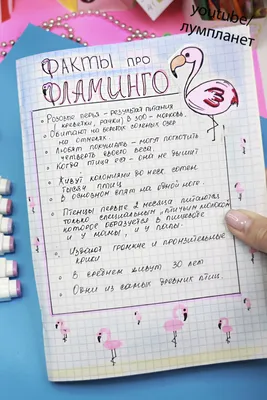 youtube/
лумпланет
ФАКТЫ ПРО
ФЛАМИНГО
• Розовые перья - результат питания
(креветки, рачки) В ЗОО - морковь.
• Обитают на берегах соленых озер
на отмелях.
• Любят покушать - могут поглотить
четверть своего веса.
• Когда птица ест - она не дышит!
• Живут колониями до неск. сотен
тысяч птиц
• В основном спят на одной ноге.
• Птенцы первые 2 месяца питаются
только специальным "птичьим молоком",
которое образуется в пищеводе
и у мамы, и у папы.
• Издают громкие и пронзительные
крики
• В среднем живут 30 лет
• Одни из самых древних птиц.